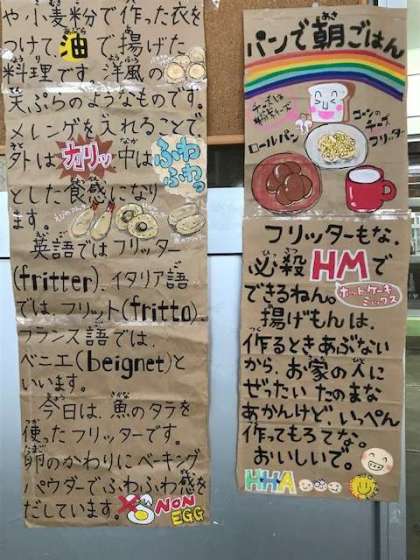 や小麦粉で作った衣を
つけて、油で、揚げた
料理です。洋風の
天ぷらのようなものです。
メレンゲを入れることで
外はカリッ中はふわふわっ
とした食感になり
ます。
英語ではフリッター
(fritter)、イタリア語
では、フリット(fritto)、
フランス語では、
ベニエ(beignet)と
いいます。
今日は、魚のタラを
使ったフリッターです。
卵のかわりにベーキング
パウダーでふわふわ感を
だしています。 NON
EGG
パンで朝ごはん
あさ
チーズは
ロールパン
コーンの
チーズ
フリッター
フリッターもな、
必殺HMで
できるねん。ホットケーキ
ミックス
揚げもんは、
作るときあぶない
から、お家の人に
ぜったいたのまな
あかんけど、いっぺん
作ってもろてな。
おいしいで。
HHA